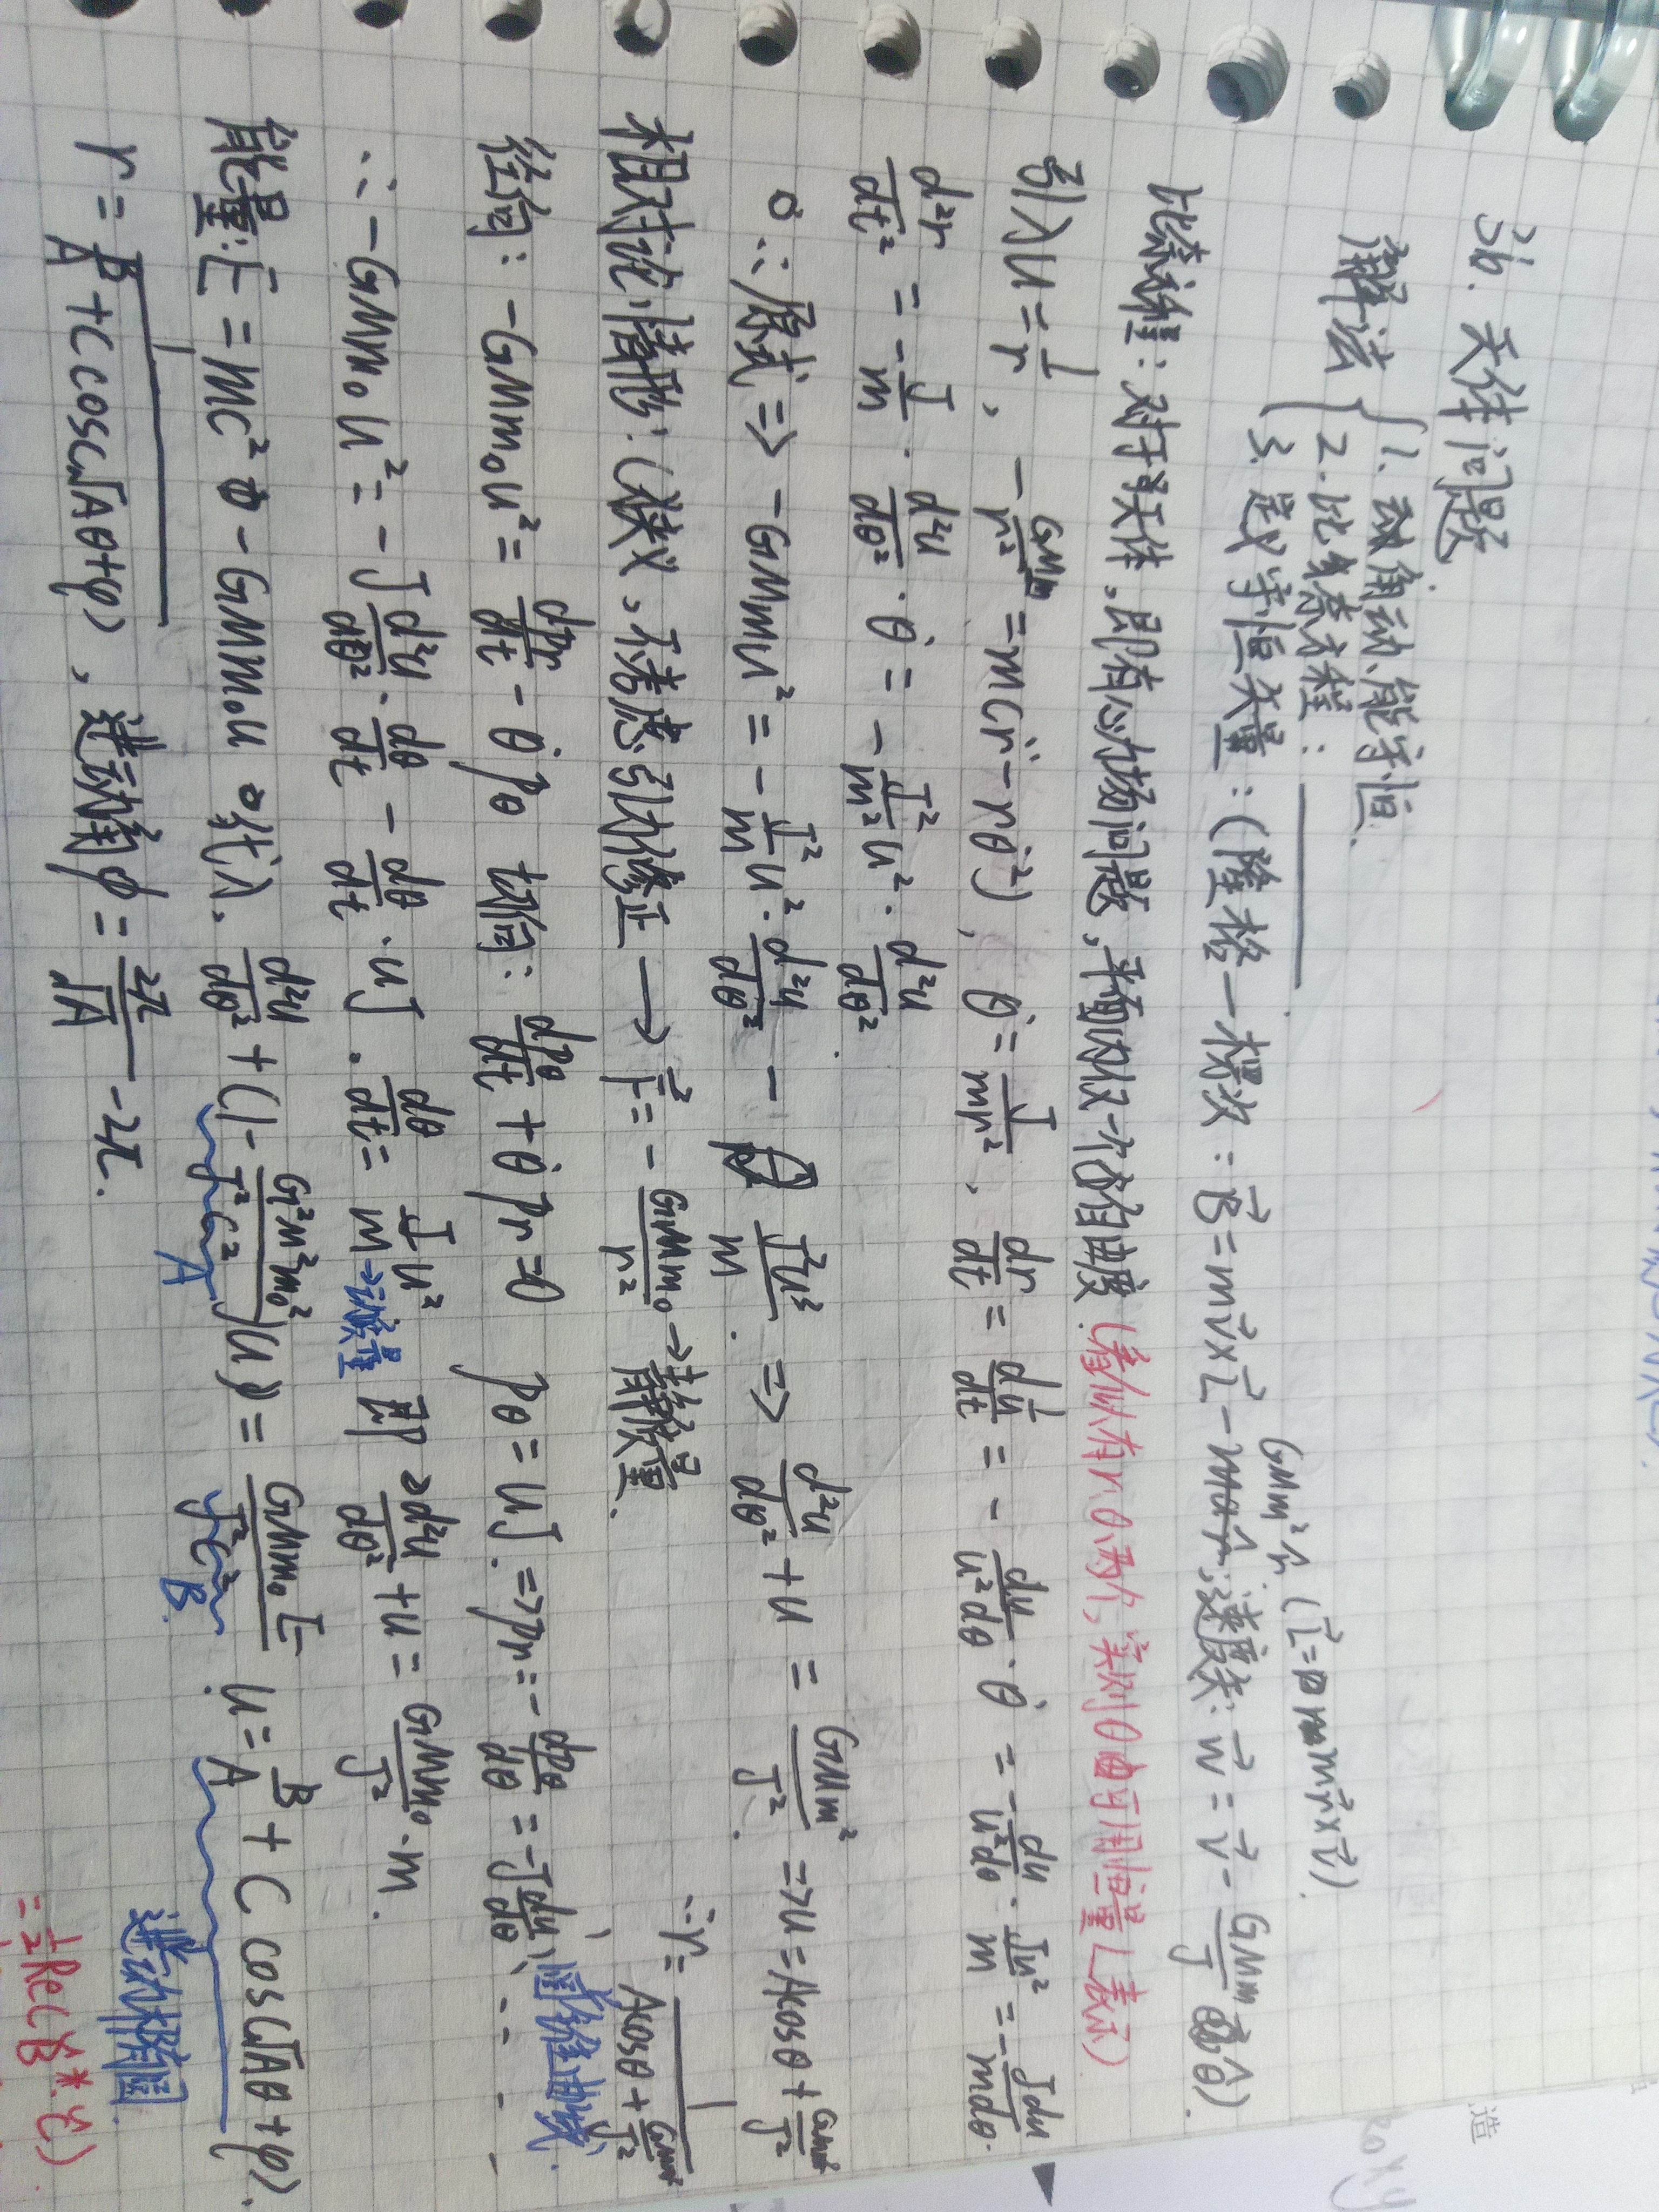 36. 天体问题
解法 { 1. 角动、能守恒.
2. 比耐方程:
3. 定义守恒矢量: (隆格一楞次: B⃗ = m v⃗ × L⃗ - GMm² r̂ (L⃗ = m r⃗ × v⃗). 速度矢: w⃗ = v⃗ - GMm/J θ̂).
比奈方程: 对于天体, 即有心力场问题, 平面内仅一个自由度 (看似有r、θ两个, 实则θ由可用恒量L表示)
引入 u = 1/r, - GMm/r² = m(r̈ - rθ̇²), θ̇ = J/mr², dr/dt = d(1/u)/dt = - du/u²dθ · θ̇ = - du/u²dθ · Ju²/m = - Jdu/mdθ.
d²r/dt² = - J/m · d²u/dθ² · θ̇ = - J²/m² u² · d²u/dθ².
∴ 原式 => - GMmu² = - J²/m u² · d²u/dθ² - J²u³/m. => d²u/dθ² + u = GMm²/J². => u = Acosθ + GMm²/J² ∴ r = 1/(Acosθ + GMm²/J²)
圆锥曲线
相对论情形: (狭义, 不考虑引力修正 → F⃗ = - GMm₀/r² → 静质量.
径向: - GMm₀u² = dpr/dt - θ̇ pθ 切向: dpθ/dt + θ̇ pr = 0 pθ = uJ. => pr = - dpθ/dθ = - J du/dθ,
∴ - GMm₀u² = - J d²u/dθ² · dθ/dt - dθ/dt · uJ. dθ/dt = J/m u² → 动质量 即 d²u/dθ² + u = GMm₀/J² · m.
能量: E = mc² - GMm₀u 代入. d²u/dθ² + (1 - G²M²m₀²/J²c²)u = GMm₀E/J²c² u = B/A + C cos(√Aθ+φ).
A B
r = 1/(B/A + C cos(√Aθ+φ)), 进动角 φ = 2π/√A - 2π. 进动椭圆
= 1/2 Re(